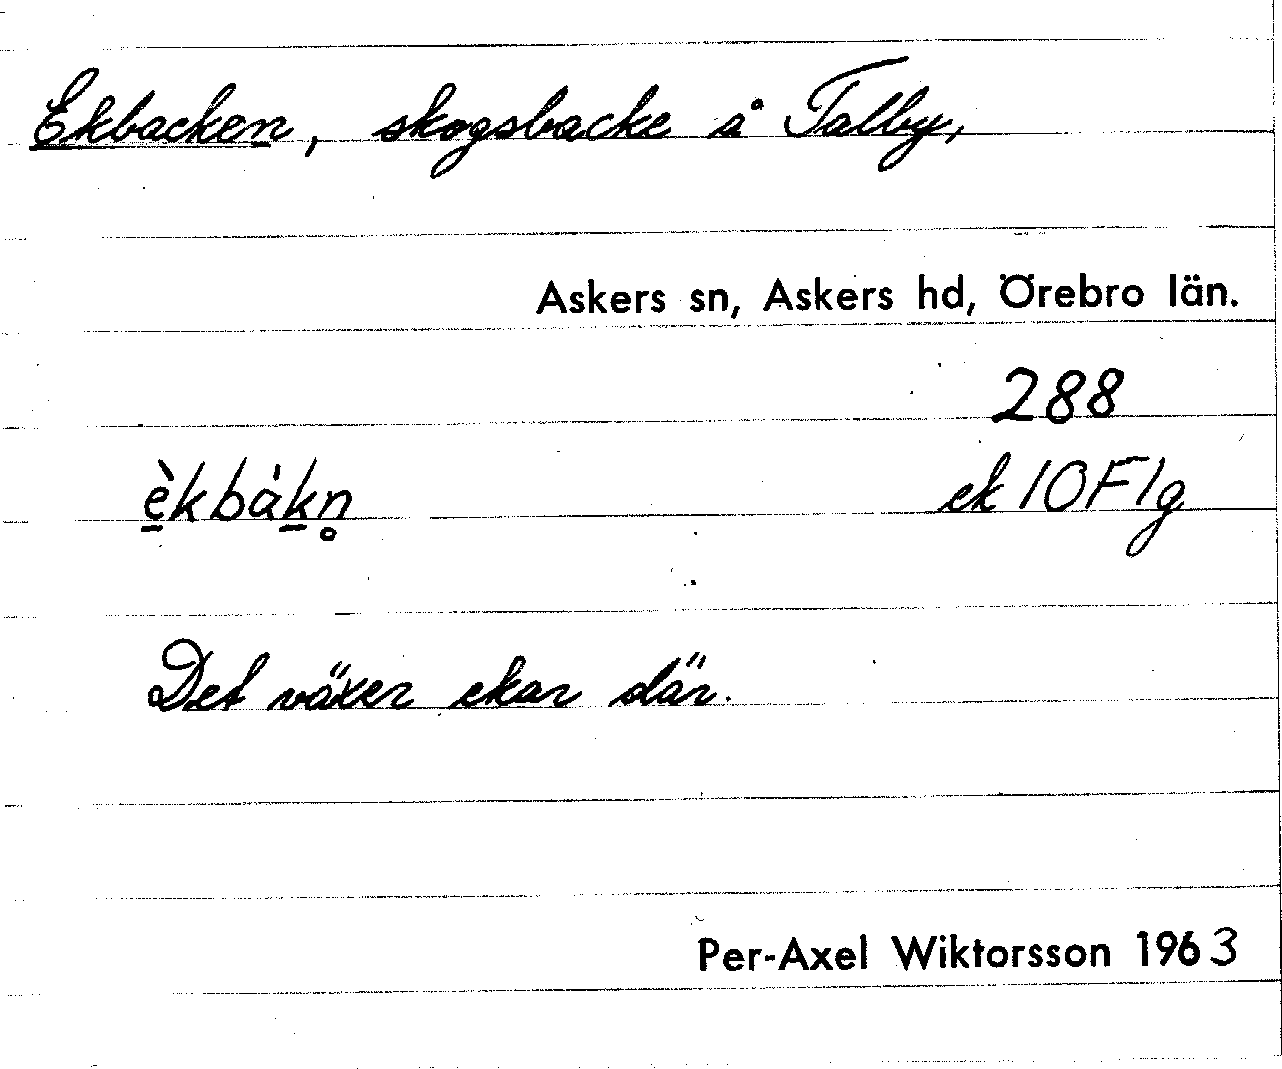 Ekbacken, skogsbacke å Talby,
Askers sn, Askers hd, Örebro län.
288
è̱kbàḵn̥ ek 10F1g
Det växer ekar där.
Per-Axel Wiktorsson 1963